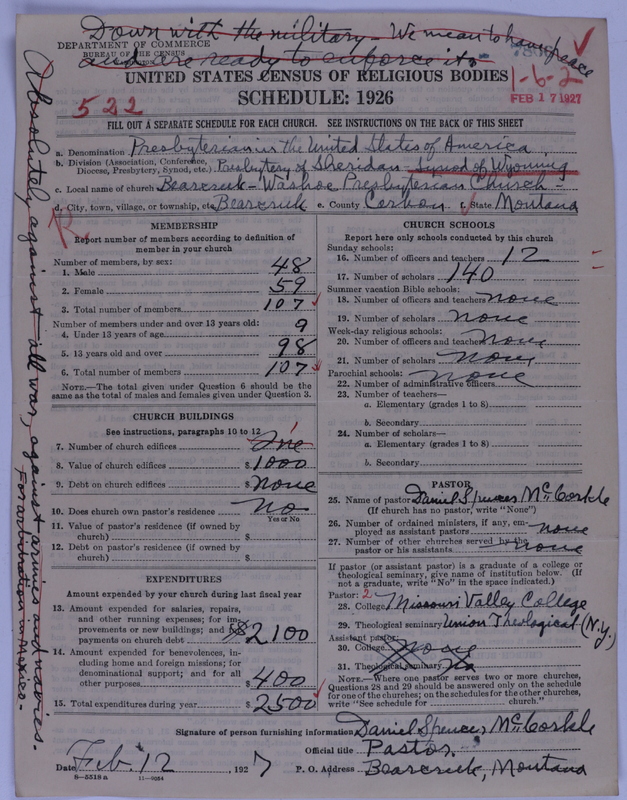 Down with the military - We mean to have peace
DEPARTMENT OF COMMERCE
BUREAU OF THE CENSUS
and are ready to enforce it -
UNITED STATES CENSUS OF RELIGIOUS BODIES
1-6-2
SCHEDULE: 1926
FEB 17 1927
522
FILL OUT A SEPARATE SCHEDULE FOR EACH CHURCH. SEE INSTRUCTIONS ON THE BACK OF THIS SHEET
a. Denomination Presbyterian in the United States of America
b. Division (Association, Conference, Diocese, Presbytery, Synod, etc.) Presbytery of Sheridan - Synod of Wyoming
c. Local name of church Bearcreek - Washoe Presbyterian Church -
d. City, town, village, or township, etc. Bearcreek e. County Carbon f. State Montana
MEMBERSHIP
Report number of members according to definition of
member in your church
Number of members, by sex:
1. Male 48
2. Female 59
3. Total number of members 107
Number of members under and over 13 years old:
4. Under 13 years of age 9
5. 13 years old and over 98
6. Total number of members 107
NOTE.—The total given under Question 6 should be
same as the total of males and females given under Question 3.
CHURCH BUILDINGS
See instructions, paragraphs 10 to 12
7. Number of church edifices One
8. Value of church edifices $ 1000
9. Debt on church edifices $ None
10. Does church own pastor's residence No
Yes or No
11. Value of pastor's residence (if owned by
church) $
12. Debt on pastor's residence (if owned by
church) $
EXPENDITURES
Amount expended by your church during last fiscal year
13. Amount expended for salaries, repairs,
and other running expenses; for im-
provements or new buildings; and
payments on church debt $ 2100
14. Amount expended for benevolences, in-
cluding home and foreign missions; for
denominational support; and for all
other purposes $ 400
15. Total expenditures during year $ 2500
CHURCH SCHOOLS
Report here only schools conducted by this church
Sunday schools:
16. Number of officers and teachers 12
17. Number of scholars 140
Summer vacation Bible schools:
18. Number of officers and teachers none
19. Number of scholars none
Week-day religious schools:
20. Number of officers and teachers none
21. Number of scholars none
Parochial schools:
22. Number of administrative officers none
23. Number of teachers—
a. Elementary (grades 1 to 8)
b. Secondary
24. Number of scholars—
a. Elementary (grades 1 to 8)
b. Secondary
PASTOR
25. Name of pastor Daniel Spencer McCorkle
(If church has no pastor, write "None")
26. Number of ordained ministers, if any, em-
ployed as assistant pastors none
27. Number of other churches served by the
pastor or his assistants none
If pastor (or assistant pastor) is a graduate of a college or
theological seminary, give name of institution below. (If
not a graduate, write "No" in the space indicated.)
Pastor: 2
28. College Missouri Valley College
29. Theological seminary Union Theological (N.Y.)
Assistant pastor:
30. College None
31. Theological seminary No
NOTE.—Where one pastor serves two or more churches,
Questions 28 and 29 should be answered only on the schedule
for one of the churches; on the schedules for the other churches,
write "See schedule for church."
Signature of person furnishing information Daniel Spencer McCorkle
Official title Pastor
Date Feb. 12, 1927 P. O. Address Bearcreek, Montana
8-5518a 11-9084
Absolutely against all war, against armies and navies.
For arbitration in Mexico.